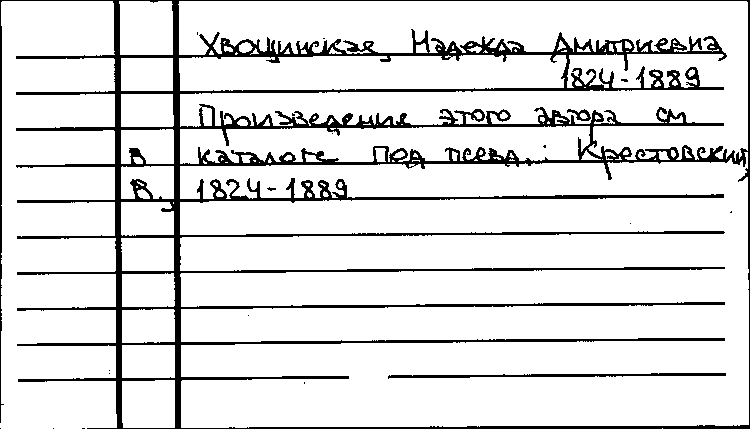 Хвощинская, Надежда Дмитриевна,
1824-1889
Произведения этого автора см.
в каталоге под псевд.: Крестовский,
В., 1824-1889